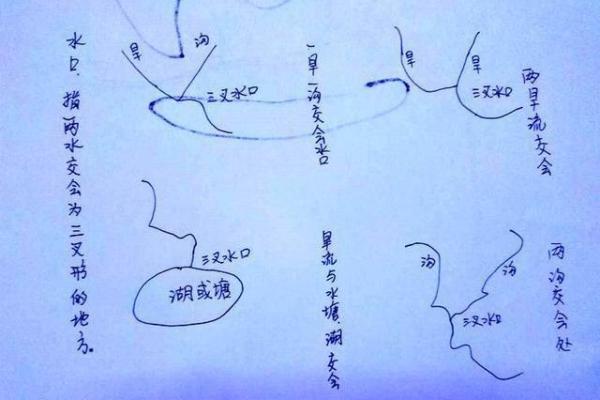 水口：指两水交会为三叉形的地方。
旱
沟
三叉水口
一旱一沟交会水口
旱
旱
三叉水口
两旱流交会
三叉水口
湖或塘
旱流与水塘、湖交会
沟
沟
三叉水口
两沟交会处